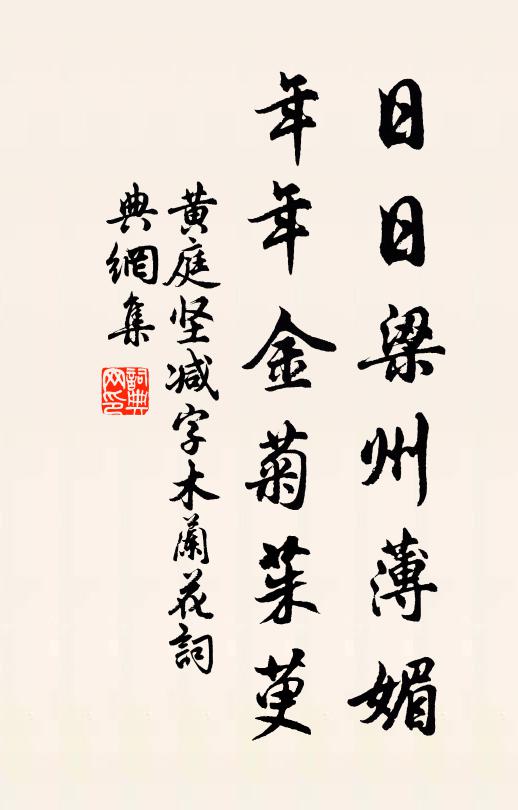 日日梁州薄媚
年年金菊茱萸
黄庭坚减字木蘭花詞
典網集
詞典網印